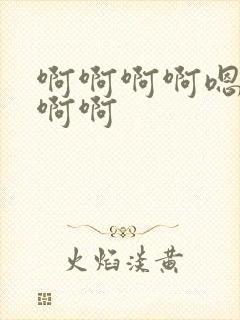 啊啊啊啊嗯
啊啊
火焰淡黄